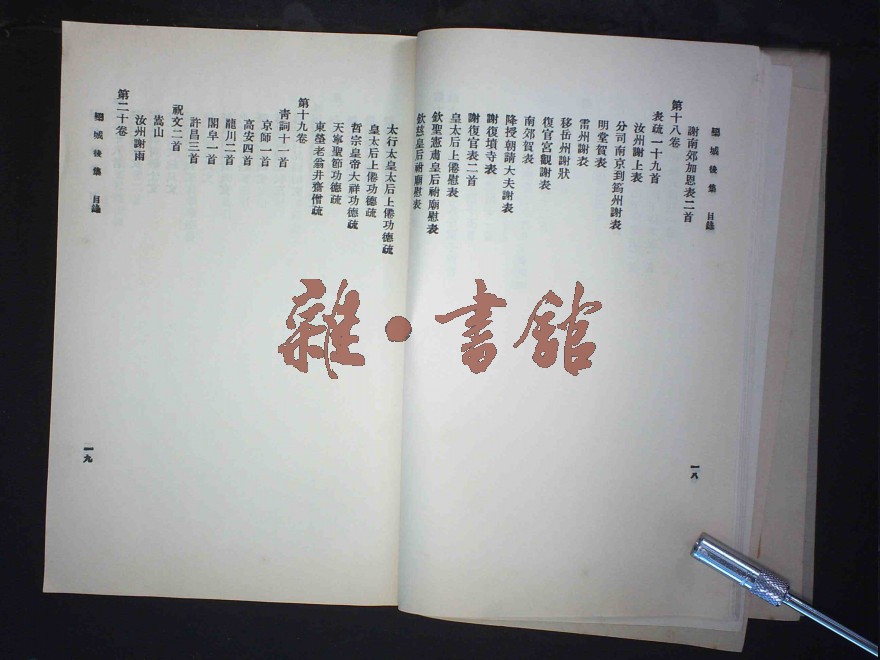 欒城後集　目錄
謝南郊加恩表二首
第十八卷
表疏一十九首
汝州謝上表
分司南京到筠州謝表
明堂賀表
雷州謝表
移岳州謝狀
復官宮觀謝表
南郊賀表
降授朝請大夫謝表
謝復墳寺表
謝復官表二首
皇太后上僊慰表
欽聖憲肅皇后祔廟慰表
欽慈皇后祔廟慰表
一八
太行太皇太后上僊功德疏
皇太后上僊功德疏
哲宗皇帝大祥功德疏
天寧聖節功德疏
東塋老翁井齋僧疏
第十九卷
青詞十一首
京師一首
高安四首
龍川二首
閣皁一首
許昌三首
祝文二首
嵩山
汝州謝雨
第二十卷
欒城後集　目錄
一九
雜·書館